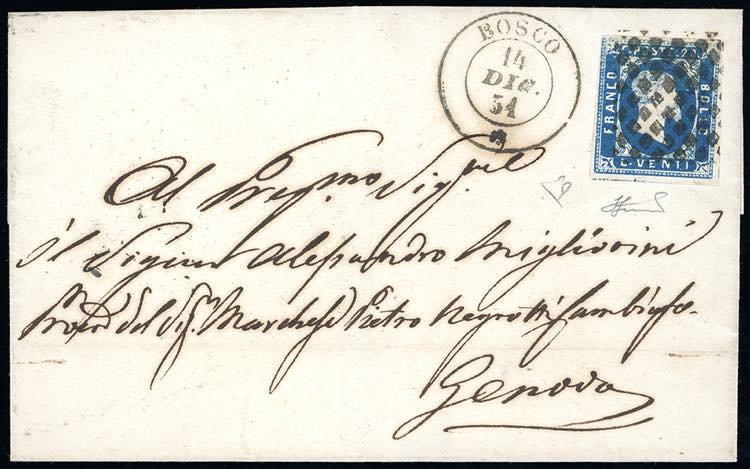 BOSCO
14
DIC.
51
C. POSTE 20
FRANCO
BOLLO
C. VENTI
Al Preg.mo Sig.
il Signor Alessandro Migliorini
Proc.e del Sig. Marchese Pietro Negrotti Cambiaso
Genova